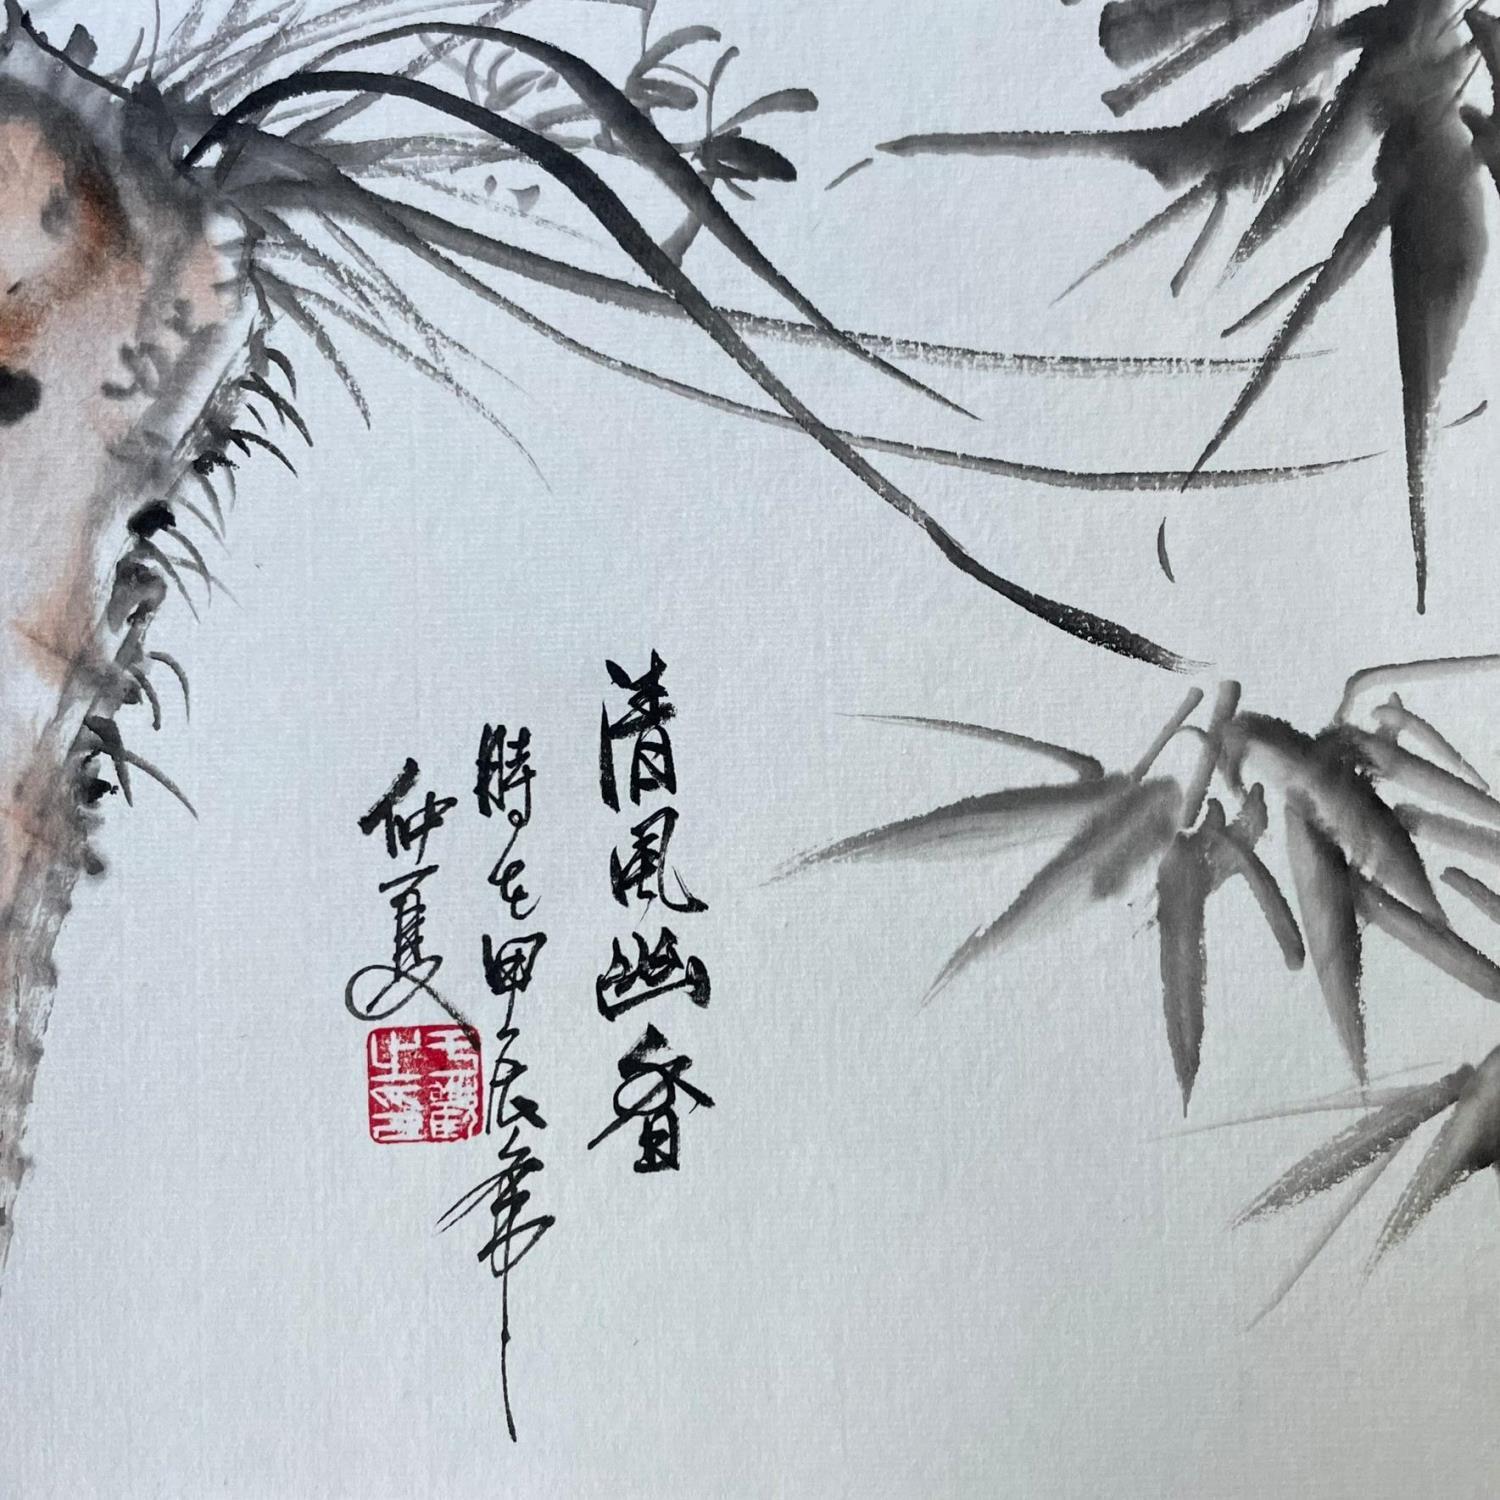 清風幽香
時在甲辰年
仲夏